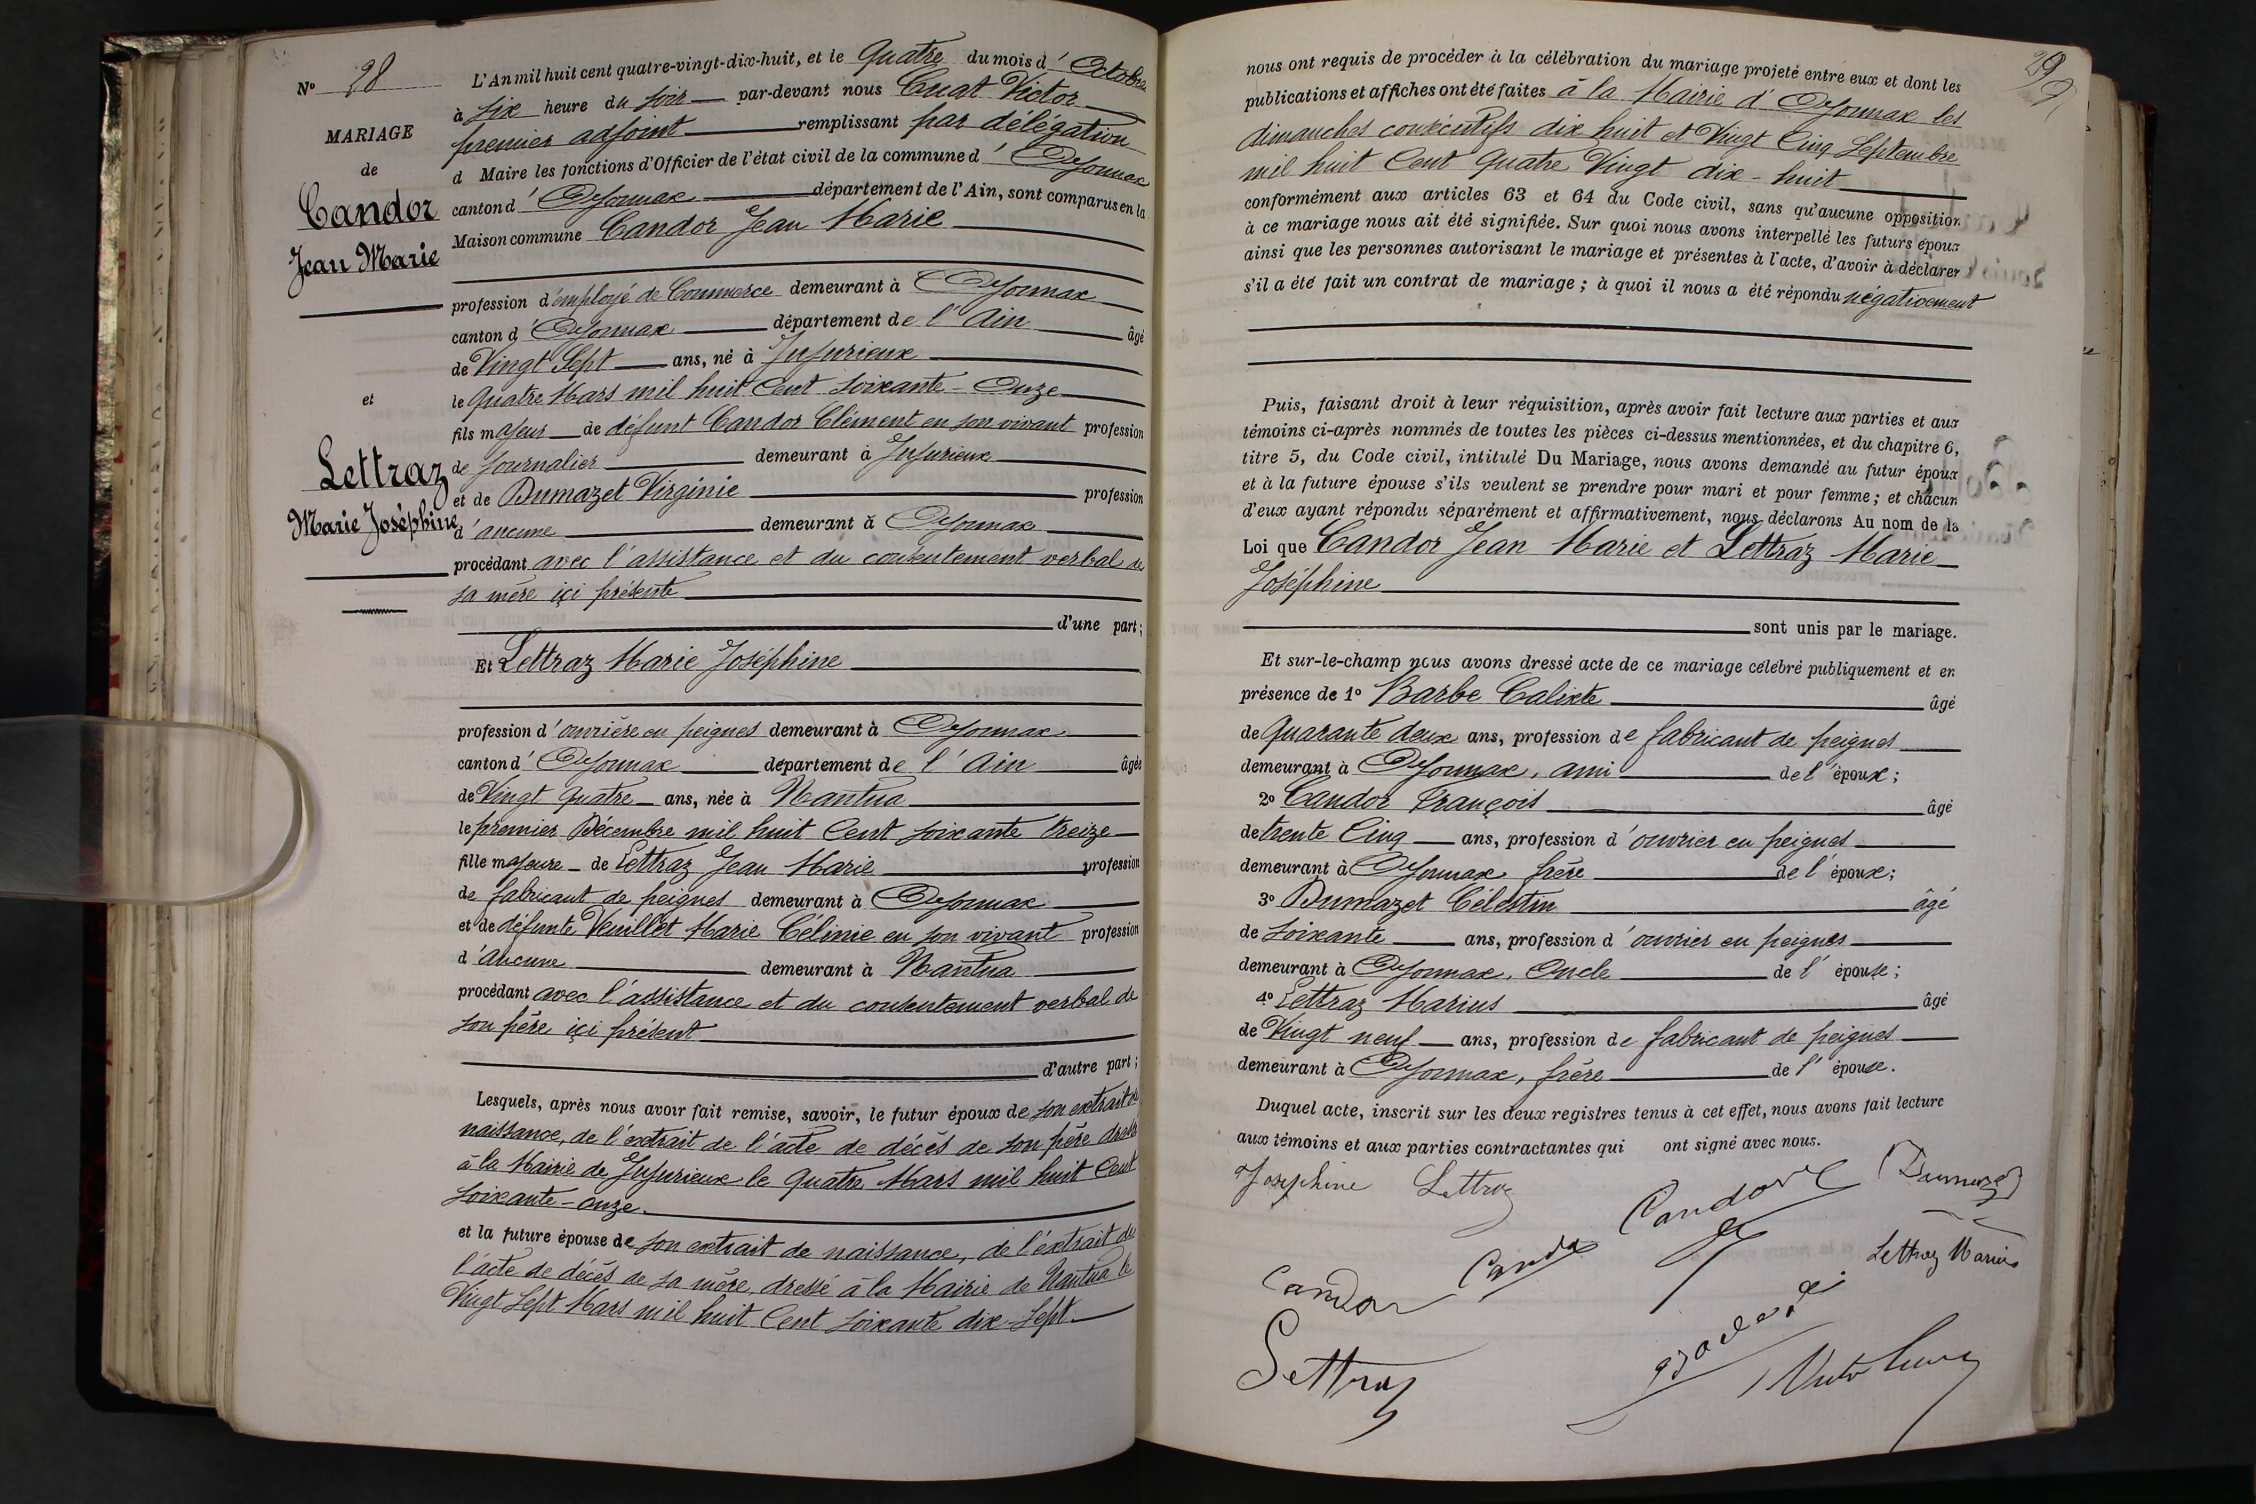 N° 28
MARIAGE
de
Candor
Jean Marie
et
Lettraz
Marie Joséphine
L'An mil huit cent quatre-vingt-dix-huit, et le Quatre du mois d'Octobre
à six heure du soir par-devant nous Cuat Victor
premier adjoint remplissant par délégation
d Maire les fonctions d'Officier de l'état civil de la commune d'Oyonnax
canton d'Oyonnax département de l'Ain, sont comparus en la
Maison commune Candor Jean Marie
profession d'employé de Commerce demeurant à Oyonnax
canton d'Oyonnax département de l'Ain âgé
de Vingt Sept ans, né à Jujurieux
le Quatre Mars mil huit Cent soixante-Onze
fils majeur de défunt Candor Clément en son vivant profession
de journalier demeurant à Jujurieux
et de Dumazet Virginie profession
d'aucune demeurant à Oyonnax
procédant avec l'assistance et du consentement verbal de
sa mère içi présente
d'une part;
Et Lettraz Marie Joséphine
profession d'ouvrière en peignes demeurant à Oyonnax
canton d'Oyonnax département de l'Ain âgée
de Vingt Quatre ans, née à Nantua
le premier Décembre mil huit Cent soixante treize
fille majeure de Lettraz Jean Marie profession
de fabricant de peignes demeurant à Oyonnax
et de défunte Veuillet Marie Célinie en son vivant profession
d'aucune demeurant à Nantua
procédant avec l'assistance et du consentement verbal de
son père içi présent
d'autre part;
Lesquels, après nous avoir fait remise, savoir, le futur époux de son extrait de
naissance, de l'extrait de l'acte de décès de son père dressé
à la Mairie de Jujurieux le Quatre Mars mil huit Cent
soixante-onze.
et la future épouse de son extrait de naissance, de l'extrait de
l'acte de décès de sa mère, dressé à la Mairie de Nantua le
Vingt Sept Mars mil huit Cent soixante dix-Sept.
29
nous ont requis de procéder à la célébration du mariage projeté entre eux et dont les
publications et affiches ont été faites à la Mairie d'Oyonnax les
dimanches consécutifs dix huit et Vingt Cinq Septembre
mil huit Cent Quatre Vingt dix-huit
conformément aux articles 63 et 64 du Code civil, sans qu'aucune opposition
à ce mariage nous ait été signifiée. Sur quoi nous avons interpellé les futurs époux
ainsi que les personnes autorisant le mariage et présentes à l'acte, d'avoir à déclarer
s'il a été fait un contrat de mariage; à quoi il nous a été répondu négativement
Puis, faisant droit à leur réquisition, après avoir fait lecture aux parties et aux
témoins ci-après nommés de toutes les pièces ci-dessus mentionnées, et du chapitre 6,
titre 5, du Code civil, intitulé Du Mariage, nous avons demandé au futur époux
et à la future épouse s'ils veulent se prendre pour mari et pour femme; et chacun
d'eux ayant répondu séparément et affirmativement, nous déclarons Au nom de la
Loi que Candor Jean Marie et Lettraz Marie
Joséphine
sont unis par le mariage.
Et sur-le-champ nous avons dressé acte de ce mariage célébré publiquement et en
présence de 1° Barbe Calixte âgé
de Quarante deux ans, profession de fabricant de peignes
demeurant à Oyonnax, ami de l'époux;
2° Candor François âgé
de trente Cinq ans, profession d'ouvrier en peignes
demeurant à Oyonnax frère de l'époux;
3° Dumazet Célestin âgé
de soixante ans, profession d'ouvrier en peignes
demeurant à Oyonnax, Oncle de l'épouse;
4° Lettraz Marius âgé
de Vingt neuf ans, profession de fabricant de peignes
demeurant à Oyonnax, frère de l'épouse.
Duquel acte, inscrit sur les deux registres tenus à cet effet, nous avons fait lecture
aux témoins et aux parties contractantes qui ont signé avec nous.
Josephine Lettraz Candor Dumazet
Candor Candor Lettraz Marius
Lettraz